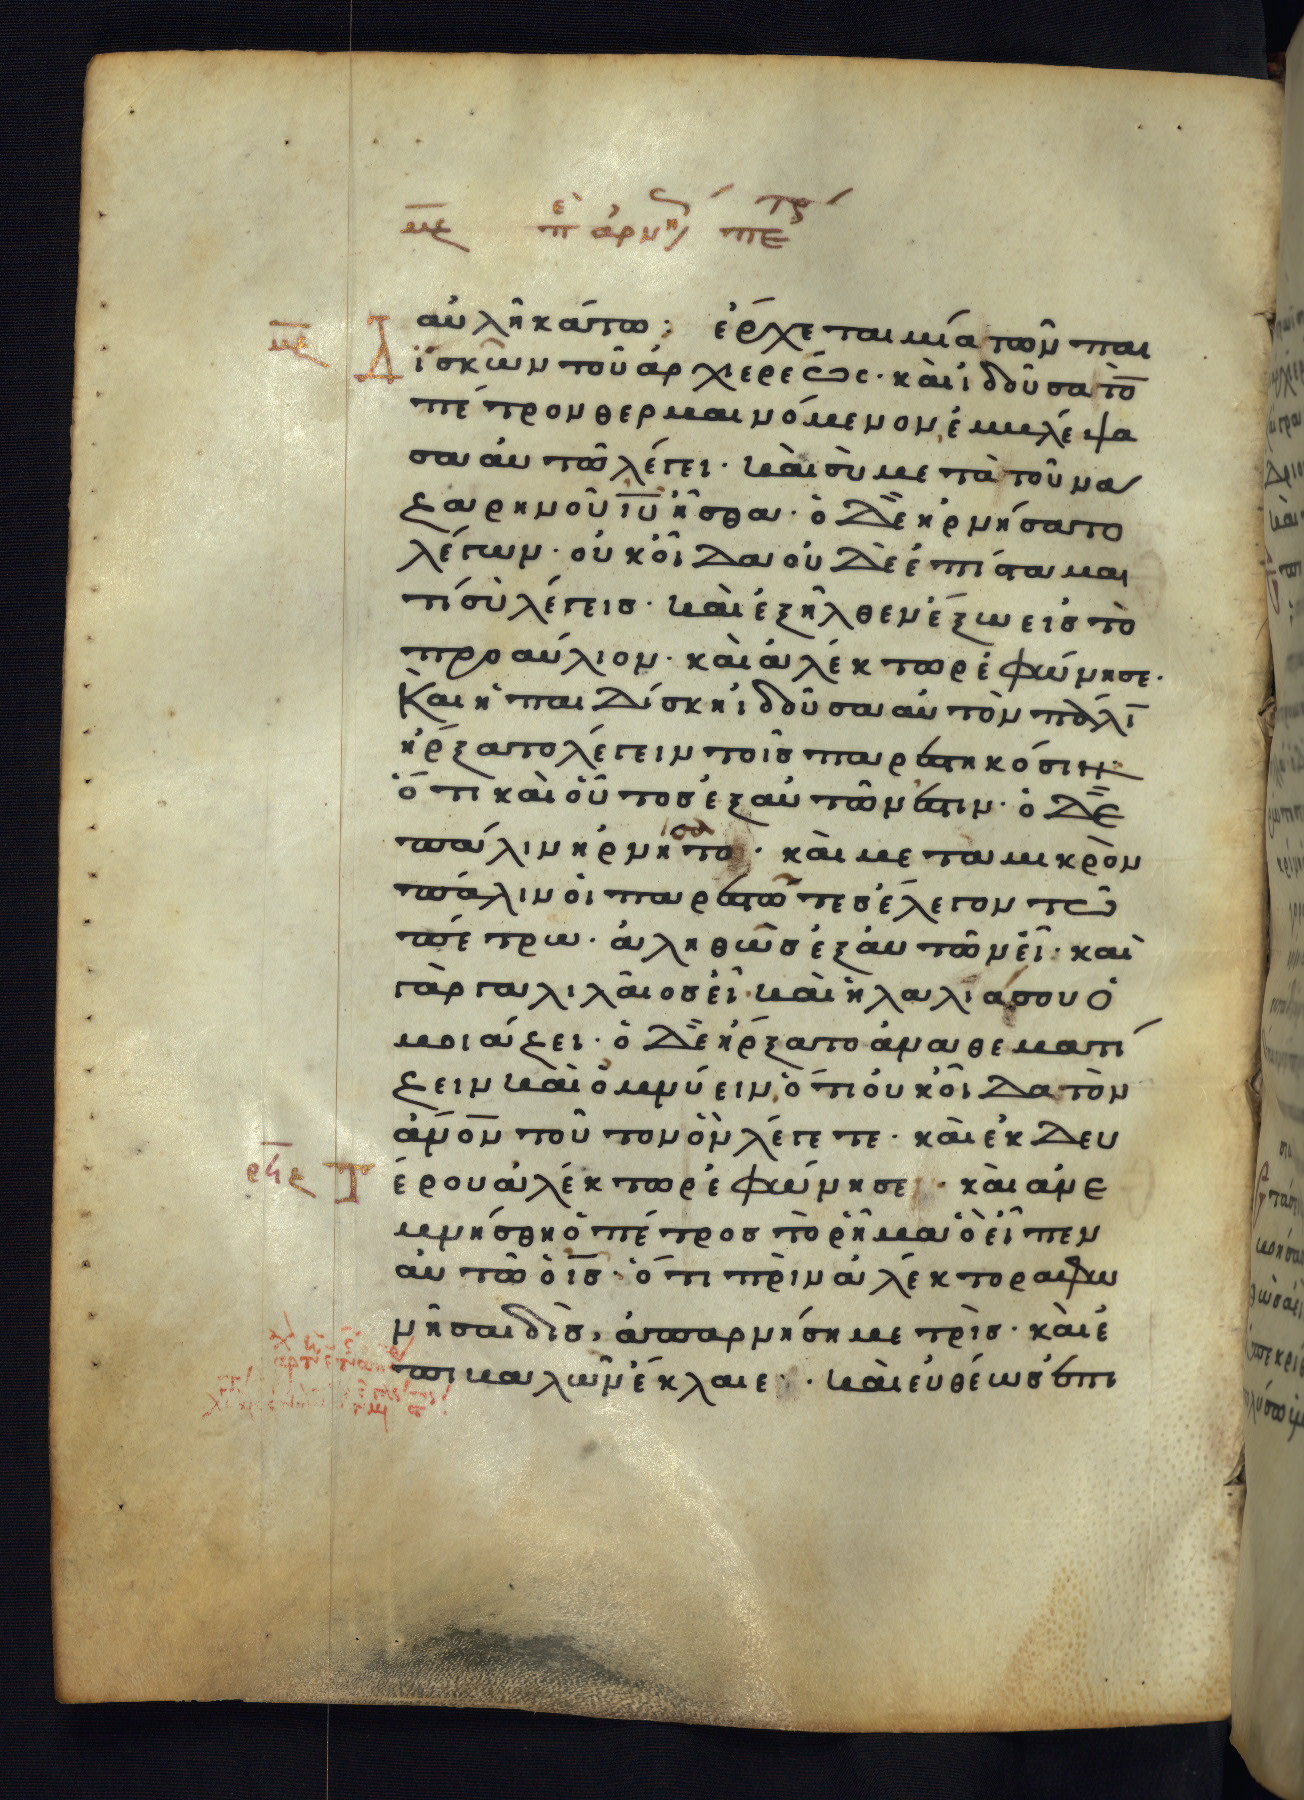 με πε ἀρνή πε
αὐλῆ κάτω· ἔρχεται μία τῶν παι
με
Δ
ϊσκῶν τοῦ ἀρχιερέως· καὶ ἰδοῦσα τὸ̅
πέτρον θερμαινόμενον, ἐμβλέψα
σα αὐτῶ λέγει· καὶ σὺ μετὰ τοῦ να
ζαρηνοῦ ι̅υ̅ ἦσθα· ὁ δὲ ἠρνήσατο
λέγων· οὐκ οἶδα οὐδὲ ἐπίσταμαι
τί σὺ λέγεις· καὶ ἐξῆλθεν ἔξω εἰς τὸ
προαύλιον· καὶ ἀλέκτωρ ἐφώνησε·
Καὶ ἡ παιδίσκη ἰδοῦσα αὐτὸν πάλι̅
ἤρξατο λέγειν τοῖς παρεστηκόσιν
ὅτι καὶ οὗτος ἐξ αὐτῶν ἐστιν· ὁ δὲ
πάλιν ἠρνήσατο· καὶ μετὰ μικρὸν
πάλιν οἱ παρεστῶτες ἔλεγον τῶ
πέτρω· ἀληθῶς ἐξ αὐτῶν εἶ· καὶ
γὰρ γαλιλαῖος εἶ· καὶ ἡ λαλιά σου ὁ
μοιάζει· ὁ δὲ ἤρξατο ἀναθεματί
ζειν καὶ ὀμνύειν, ὅτι οὐκ οἶδα τὸν
α̅ν̅ο̅ν τοῦτον ὃν λέγετε· καὶ ἐκ δευ
Τ
έρου ἀλέκτωρ ἐφώνησε· καὶ ἀνε
μνήσθη ὁ πέτρος τὸ ῥῆμα ὃ εἶπεν
αὐτῶ ὁ ι̅ς̅· ὅτι πρὶν ἀλέκτορα φω
νῆσαι δὶς, ἀπαρνήση με τρίς· καὶ ἐ
πιβαλὼν ἔκλαιε· καὶ εὐθέως ἐπι